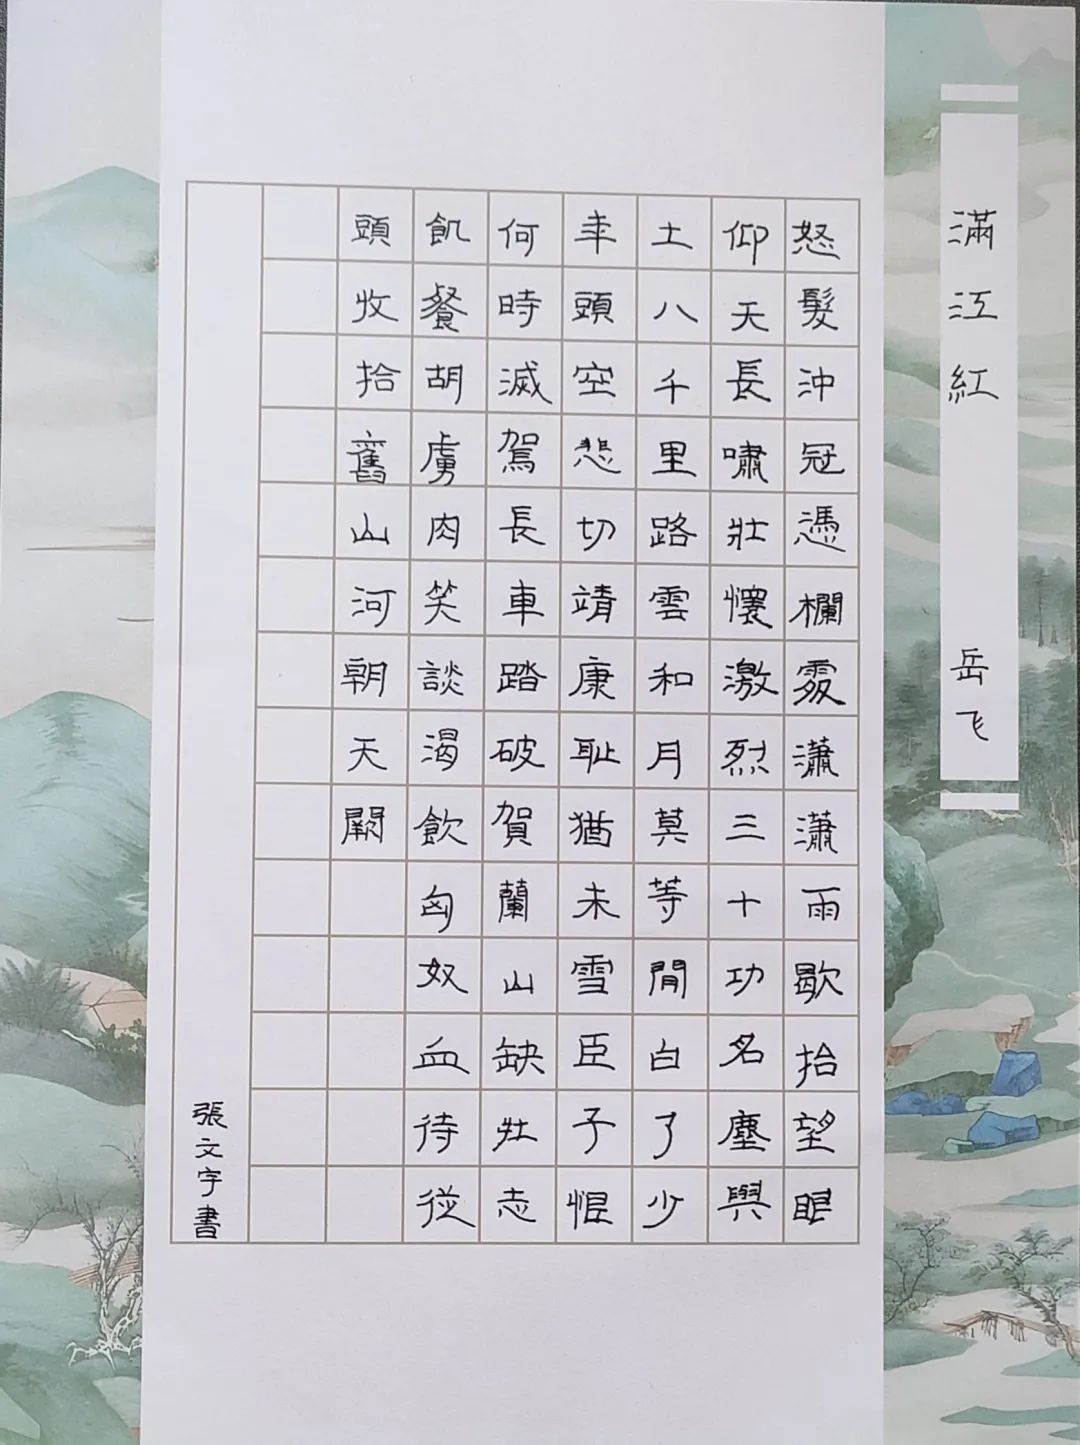 滿江紅 岳飞
怒髮沖冠憑欄處瀟瀟雨歇抬望眼
仰天長嘯壯懷激烈三十功名塵與
土八千里路雲和月莫等閒白了少
年頭空悲切靖康耻猶未雪臣子恨
何時滅駕長車踏破賀蘭山缺壯志
飢餐胡虜肉笑談渴飲匈奴血待從
頭收拾舊山河朝天闕
張文字書